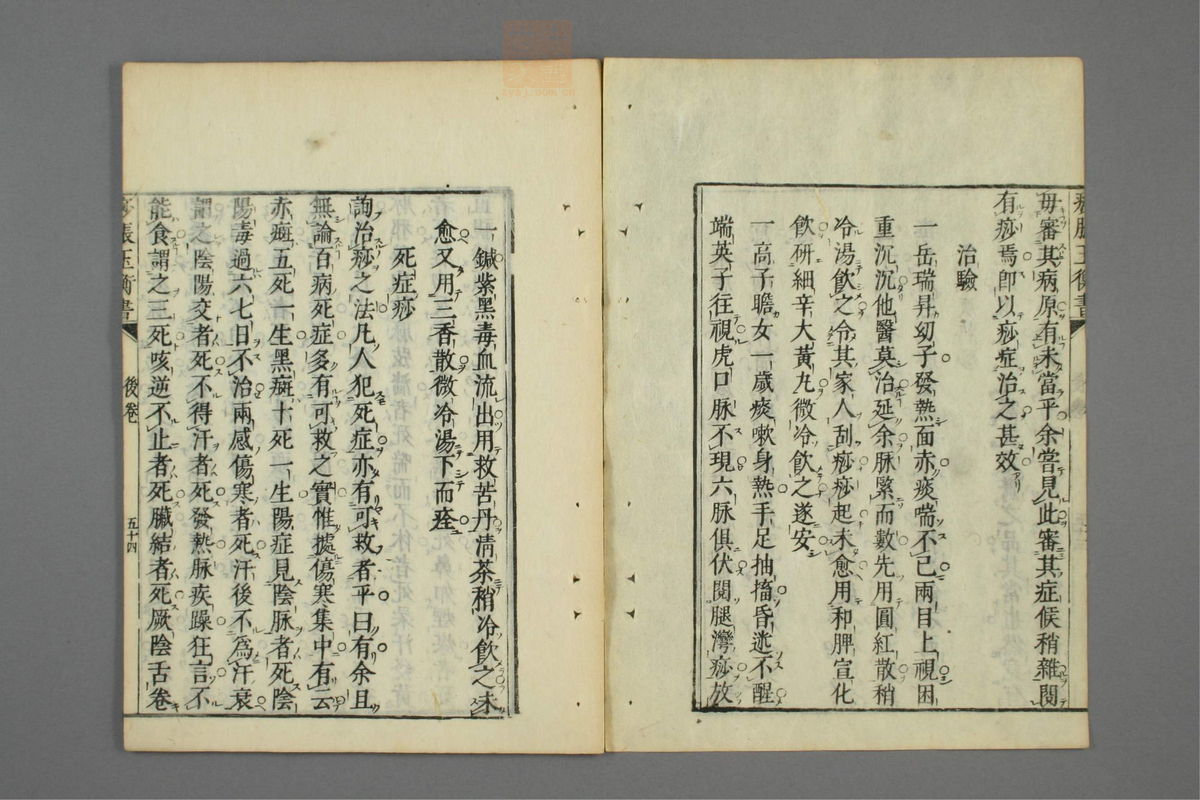 毋審其病原有未當乎余嘗見此審其症候稍雜閱
有痧焉卽以痧症治之甚效
治驗
一岳瑞昇幼子發熱面赤痰喘不已兩目上視困
重沉沉他醫莫治延余脉緊而數先用圓紅散稍
冷湯飲之令其家人刮痧痧起未愈用和脾宣化
飲研細辛大黃丸微冷飲之遂安
一高子瞻女一歲痰嗽身熱手足抽搐昏迷不醒
端英子往視虎口脉不現六脉俱伏閱腿灣痧放
一鍼紫黑毒血流出用救苦丹清茶稍冷飲之未
愈又用三香散微冷湯下而痊
死症痧
詢治痧之法凡人犯死症亦有可救者乎曰有余且
無論百病死症多有可救之實惟據傷寒集中有云
赤斑五死一生黑斑十死一生陽症見陰脉者死陰
陽毒過六七日不治兩感傷寒者死汗後不爲汗衰
謂之陰陽交者死不得汗者死發熱脉疾躁狂言不
能食謂之三死咳逆不止者死臟結者死厥陰舌卷
痧脹玉衡書
後卷
五十四